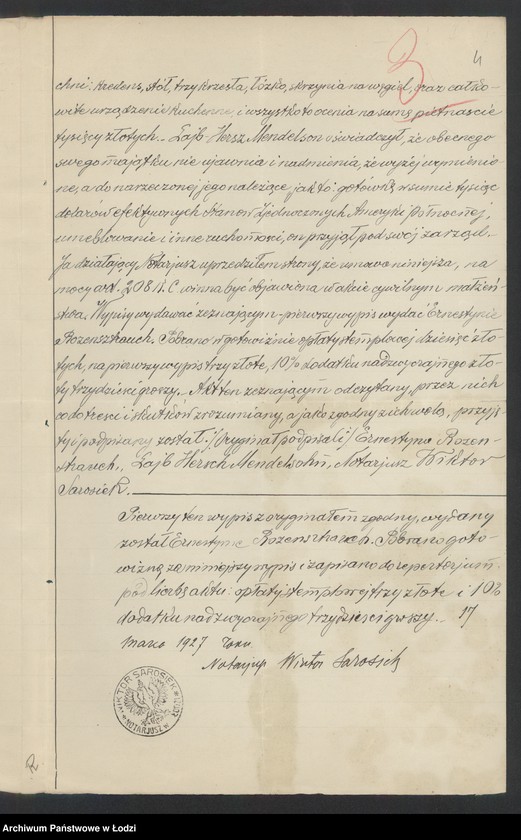 3
4
chni: kredens, stół, trzy krzesła, łóżko, skrzynia na węgiel, oraz całko-
wite urządzenie kuchenne, i wszystko to ocenia na sumę piętnaście
tysięcy złotych.- Lajb-Hersz Mendelson oświadczył, że obecnego
swego majątku nie ujawnia i nadmienia, że wyżej wymienio-
ne, a do narzeczonej jego należące, jak to: gotówkę w sumie tysiąc
dolarów efektywnych Stanów Zjednoczonych Ameryki Północnej,
umeblowanie i inne ruchomości, on przyjął pod swój zarząd.-
Ja działający Notarjusz uprzedziłem strony, że umowa niniejsza, na
mocy art. 208 K.C. winna być objawiona w akcie cywilnym małżeń-
stwa. Wypisy wydawać zeznającym - pierwszy wypis wydać Ernestynie
Rozenszhauch. Pobrano w gotowiźnie opłaty stemplowej dziesięć zło-
tych, na pierwszy wypis trzy złote, 10% dodatku nadzwyczajnego zło-
ty trzydzieści groszy.- Akt ten zeznającym odczytany, przez nich
co do treści i skutków zrozumiany, a jako zgodny z ich wolą, przyję-
ty i podpisany został./ Oryginał podpisali:/ Ernestyna Rozen-
shauch., Lajb Hersch Mendelsohn, Notarjusz Wiktor
Sarosiek.
Pierwszy ten wypis z oryginałem zgodny, wydany
został Ernestynie Rozenszhauch. Pobrano goto-
wizną za niniejszy wypis i zapisano do repertorjum
pod liczbą aktu: opłaty stemplowej trzy złote i 10%
dodatku nadzwyczajnego trzydzieści groszy.- 17
marca 1927 roku
Notarjusz Wiktor Sarosiek
WIKTOR SAROSIEK
NOTARJUSZ W ŁODZI
Archiwum Państwowe w Łodzi